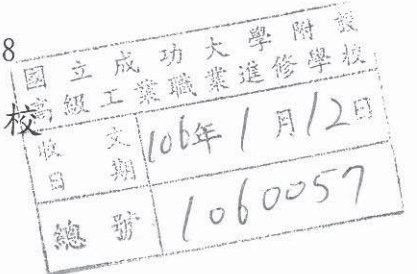 8
國立成功大學附設
高級工業職業進修學校
校
收文
日期
106年1月12日
總號
1060057